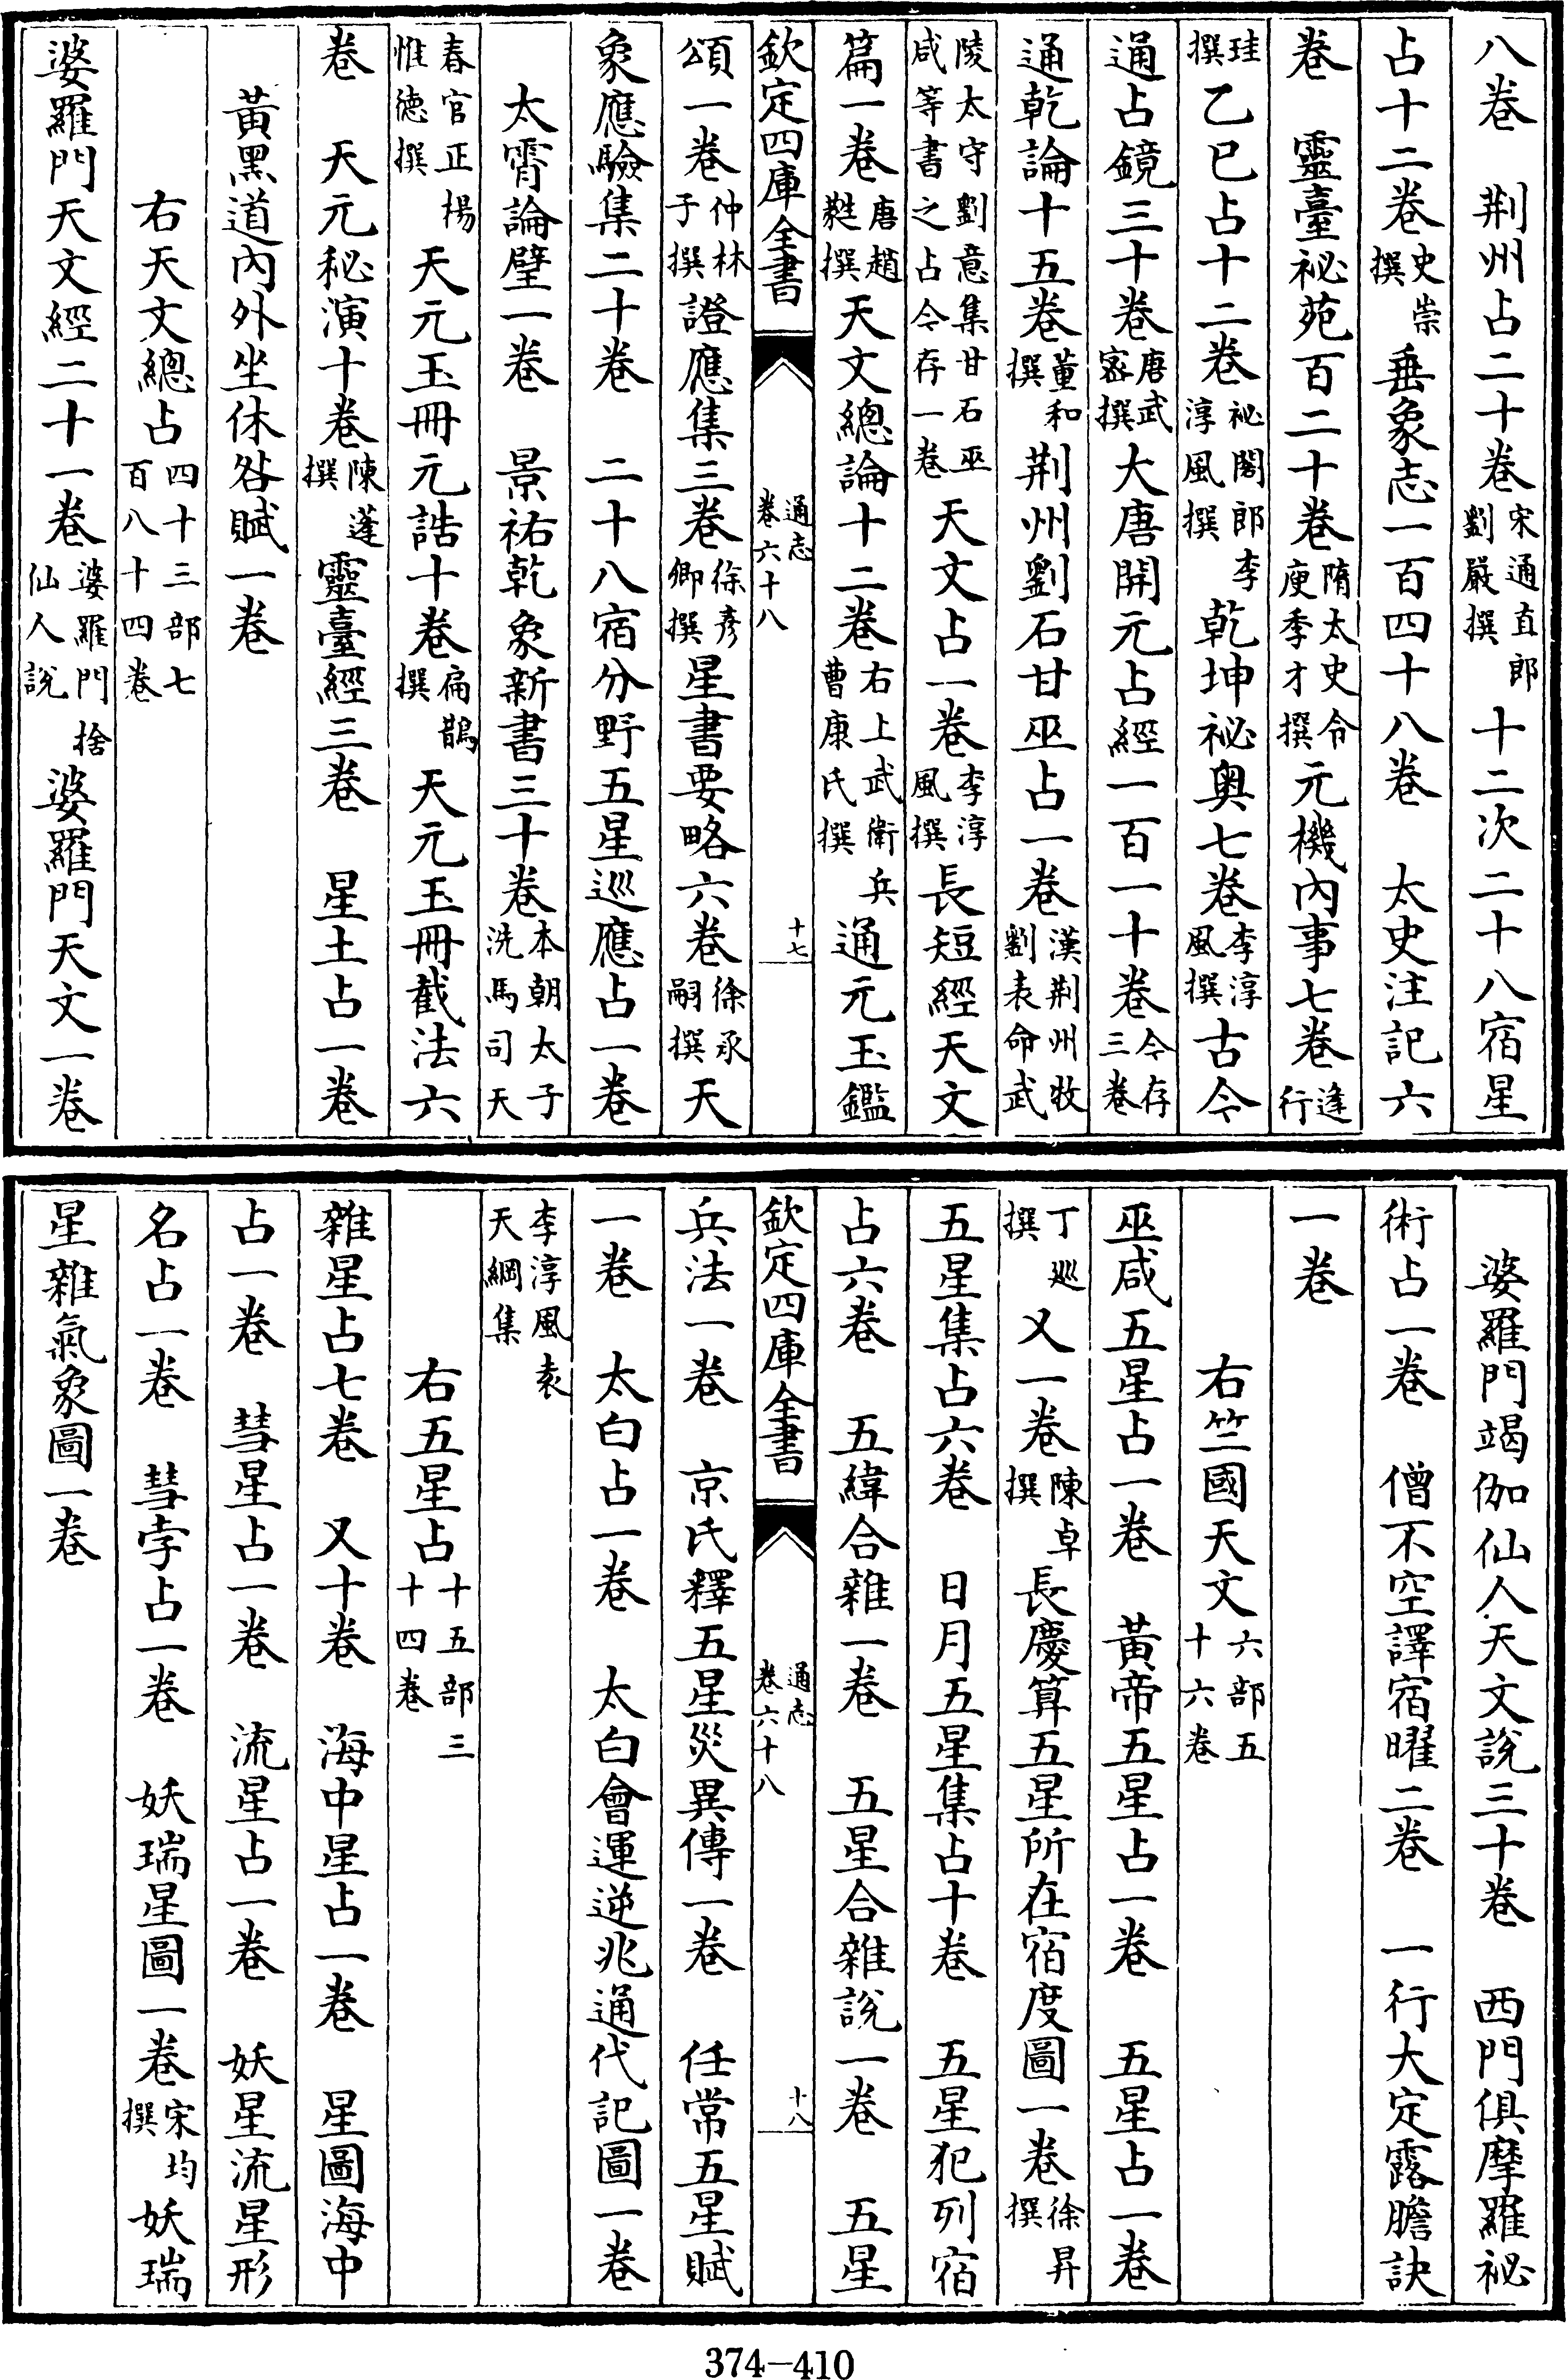 八卷　荆州占二十卷宋通直郎劉嚴撰　十二次二十八宿星
占十二卷史崇撰垂象志一百四十八卷　太史注記六
卷　靈臺祕苑百二十卷隋太史令庾季才撰元機內事七卷逢行
珪撰乙巳占十二卷祕閣郎李淳風撰乾坤祕奥七卷李淳風撰古今
通占鏡三十卷唐武密撰大唐開元占經一百一十卷今存三卷
通乾論十五卷董和撰荆州劉石甘巫占一卷漢荆州牧劉表命武
陵太守劉意集甘石巫咸等書之占今存一卷天文占一卷李淳風撰長短經天文
篇一卷唐趙蕤撰天文總論十二卷右上武衛兵曹康氏撰通元玉鑑
欽定四庫全書　通志卷六十八　十七
頌一卷仲林子撰證應集三卷徐彥卿撰星書要略六卷徐承嗣撰天
象應驗集二十卷　二十八宿分野五星巡應占一卷
太霄論壁一卷　景祐乾象新書三十卷本朝太子洗馬司天
春官正楊惟德撰天元玉冊元誥十卷扁鵲撰天元玉冊截法六
卷　天元秘演十卷陳蓬撰靈臺經三卷　星土占一卷
黃黑道內外坐休咎賦一卷
右天文總占四十三部七百八十四卷
婆羅門天文經二十一卷婆羅門捨仙人說婆羅門天文一卷
婆羅門竭伽仙人天文說三十卷　西門俱摩羅祕
術占一卷　僧不空譯宿曜二卷　一行大定露膽訣
一卷
右竺國天文六部五十六卷
巫咸五星占一卷　黃帝五星占一卷　五星占一卷
丁巡撰又一卷陳卓撰長慶算五星所在宿度圖一卷徐昇撰
五星集占六卷　日月五星集占十卷　五星犯列宿
占六卷　五緯合雜一卷　五星合雜說一卷　五星
欽定四庫全書　通志卷六十八　十八
兵法一卷　京氏釋五星災異傳一卷　任常五星賦
一卷　太白占一卷　太白會運逆兆通代記圖一卷
李淳風袁天綱集
右五星占十五部三十四卷
雜星占七卷　又十卷　海中星占一卷　星圖海中
占一卷　彗星占一卷　流星占一卷　妖星流星形
名占一卷　彗孛占一卷　妖瑞星圖一卷宋均撰妖瑞
星雜氣象圖一卷
374—410